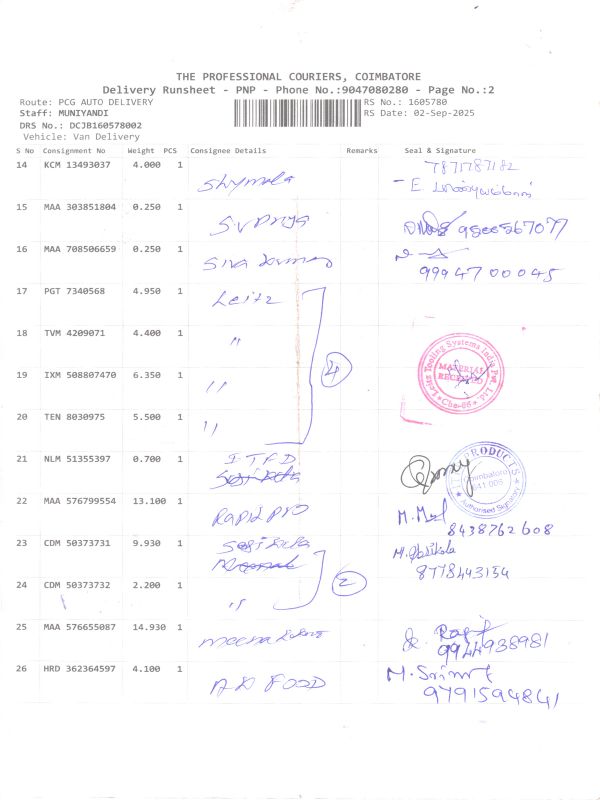 THE PROFESSIONAL COURIERS, COIMBATORE
Delivery Runsheet - PNP - Phone No.:9047080280 - Page No.:2
Route: PCG AUTO DELIVERY
RS No.: 1605780
Staff: MUNIYANDI
RS Date: 02-Sep-2025
DRS No.: DCJB160578002
Vehicle: Van Delivery
S No Consignment No Weight PCS Consignee Details Remarks Seal & Signature
14 KCM 13493037 4.000 1 Shymala 7871787182
15 MAA 303851804 0.250 1 S.V Priya 9500567077
16 MAA 708506659 0.250 1 Siva Kumar 9994700045
17 PGT 7340568 4.950 1 Leitz
18 TVM 4209071 4.400 1 "
4
19 IXM 508807470 6.350 1 "
Leitz Tooling Systems India Pvt. Ltd
MATERIAL
RECEIVED
Cbe-06
20 TEN 8030975 5.500 1 "
21 NLM 51355397 0.700 1 ITFD
PRODUCTS
Coimbatore
641 006
Authorised Signatory
22 MAA 576799554 13.100 1 Rapid Pro
8438762608
23 CDM 50373731 9.930 1
8778443154
24 CDM 50373732 2.200 1 "
2
25 MAA 576655087 14.930 1 meena
9944938981
26 HRD 362364597 4.100 1 A D FOOD
9791594841